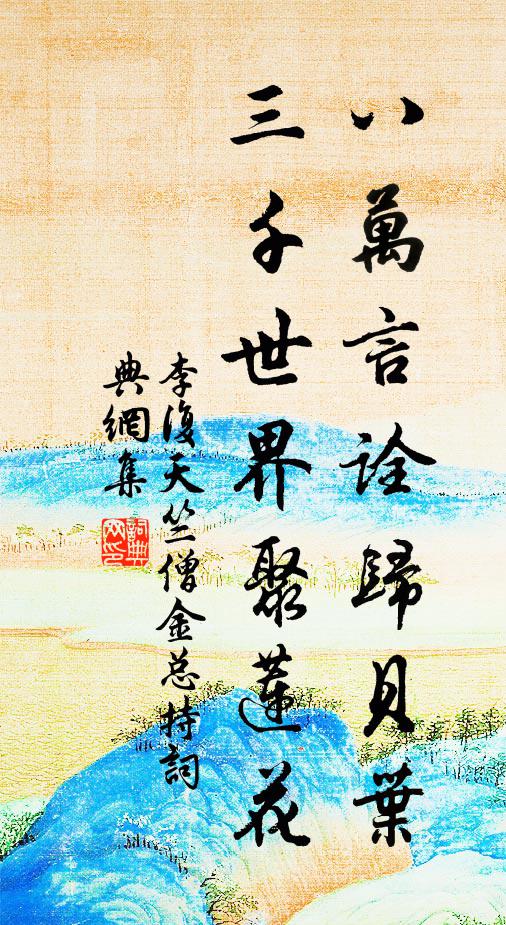 八萬言詮歸貝葉
三千世界聚蓮花
李復天竺僧金总持詞
典網集